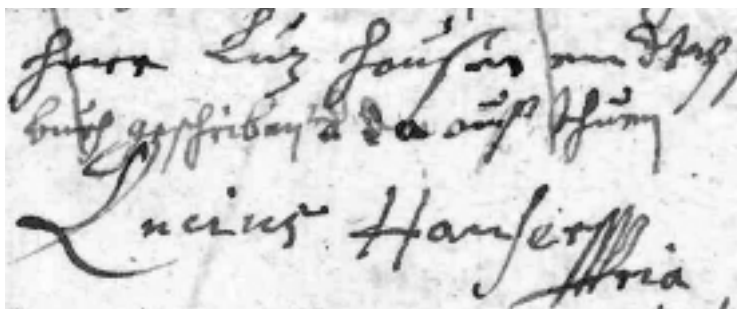 herr Luz Hauser ein
buch geschriben da auß thuen
Lucius Hauser